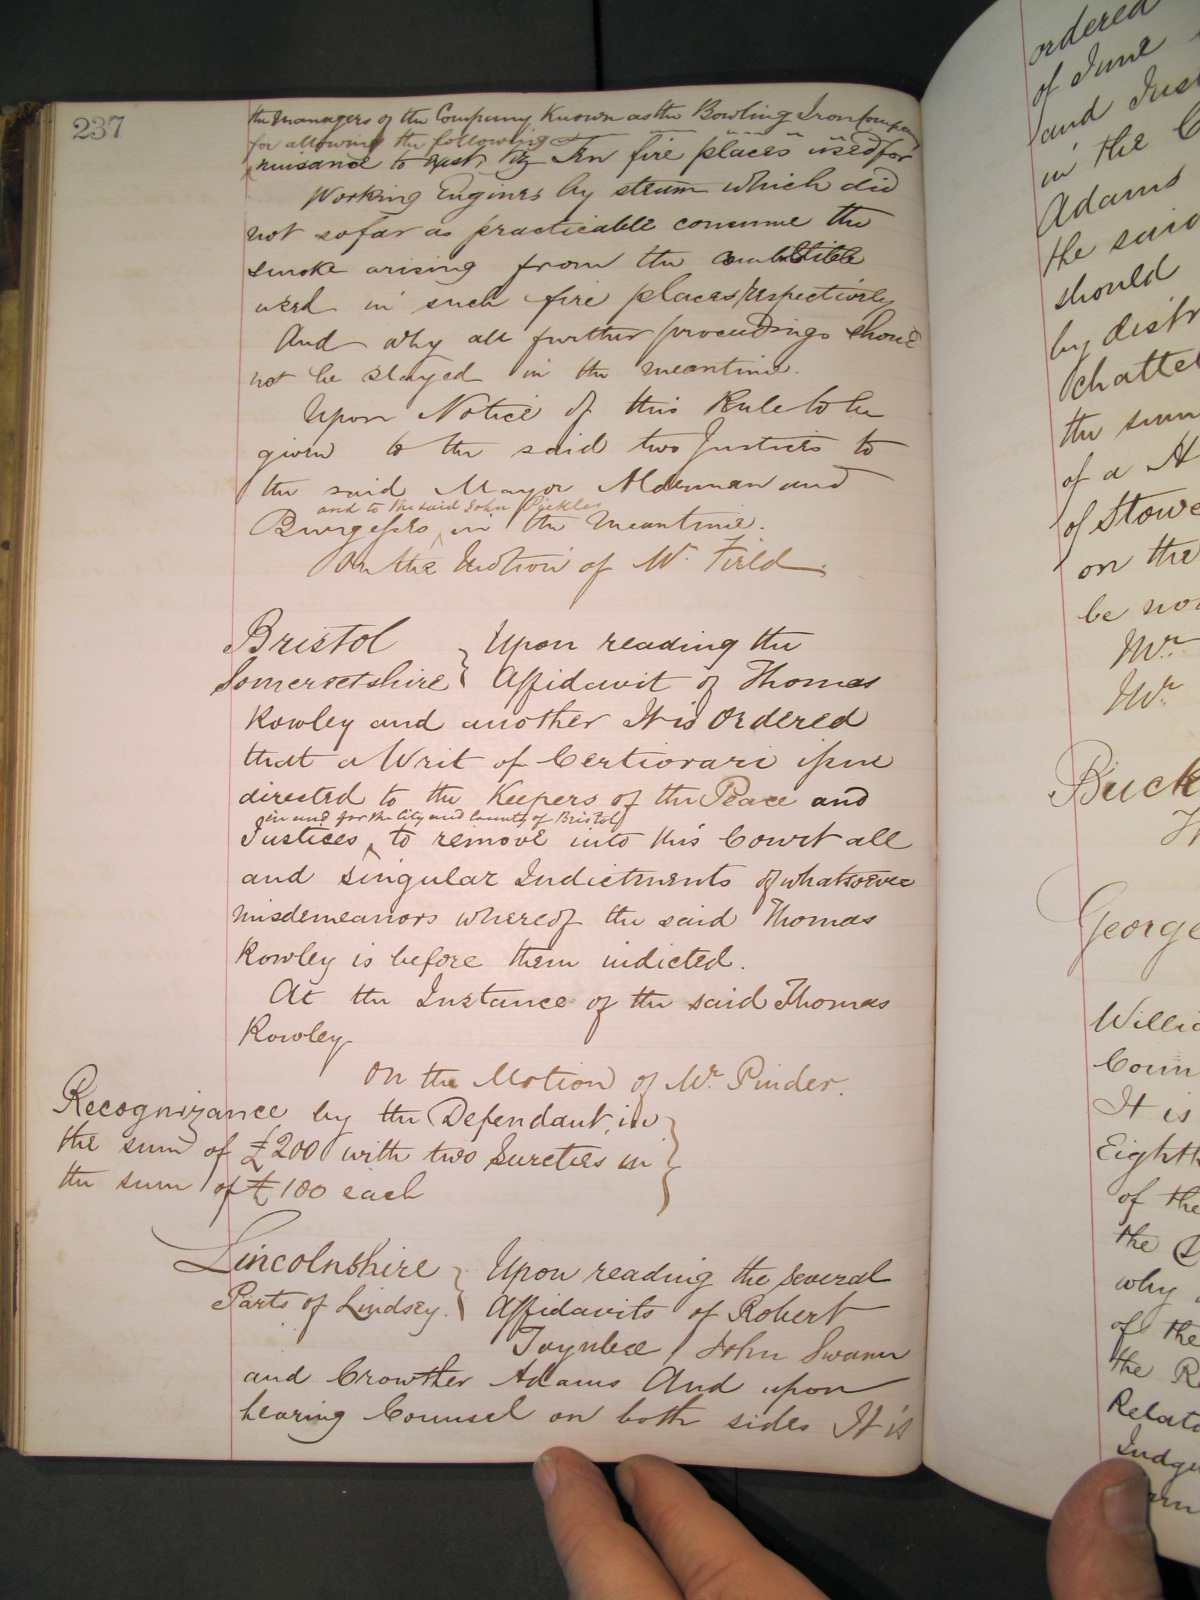 237
the managers of the Company Known as the Bowling Iron Company
for allowing the following
nuisance to exist, viz Ten fire places used for
Working Engines by steam which did
not so far as practicable consume the
smoke arising from the combustible
used in such fire places respectively
And why all further proceedings should
not be stayed in the meantime.
Upon Notice of this Rule to be
given to the said two Justices to
the said Mayor Alderman and
and to the said John Pickles
Burgesses in the Meantime.
On the Motion of Mr. Field.
Bristol } Upon reading the
Somersetshire } Affidavit of Thomas
Rowley and another It is Ordered
that a Writ of Certiorari issue
directed to the Keepers of the Peace and
in and for the City and County of Bristol
Justices to remove into this Court all
and singular Indictments of whatsoever
misdemeanors whereof the said Thomas
Rowley is before them indicted.
At the Instance of the said Thomas
Rowley
On the Motion of Mr. Pinder.
Recognizance by the Defendant in
the sum of £200 with two Sureties in
the sum of £100 each
Lincolnshire } Upon reading the several
Parts of Lindsey. } Affidavits of Robert
Toynbee John Swann
and Crowther Adams And upon
hearing Counsel on both sides It is
ordered
of June
and Just
in the C
Adams
the said
should
by distr
chattel
the sum
of a
of Stowe
on the
be no
Mr
Mr
Buck
George
Willi
Coun
It is
Eighth
of the
the
why
of the
the R
Relat
Judge